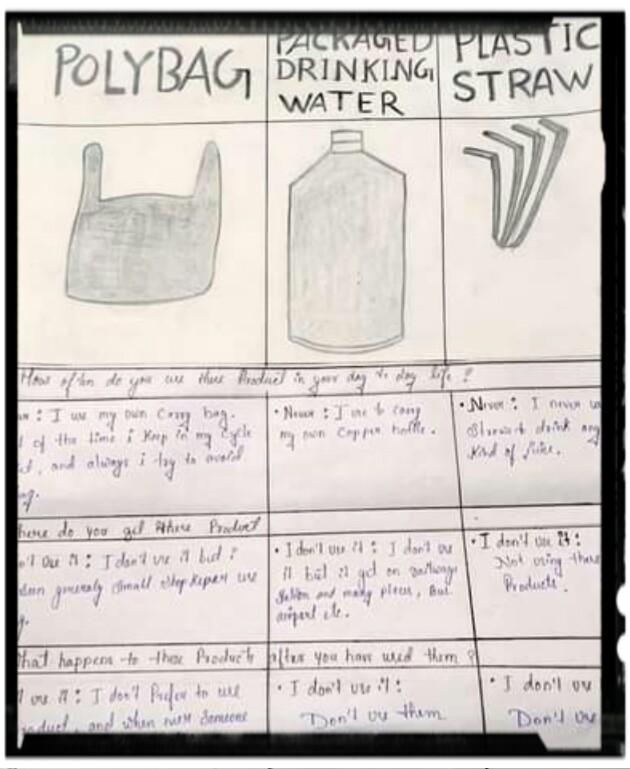 POLYBAG
PACKAGED
DRINKING
WATER
PLASTIC
STRAW
How often do you use these Product in your day to day life ?
: I use my own Carry bag.
of the time i Keep in my Cycle
, and always i try to avoid
• Never : I use to carry
my own Copper bottle.
• Never : I never
drink any
Kind of Juice.
here do you get these Product
use it : I don't use it but i
generaly Small Shop Keeper use
• I don't use it : I don't use
it but it get on railway
station and many places, Bus
airport etc.
• I don't use it :
Not using these
Products.
hat happens to these Products after you have used them ?
use it : I don't Prefer to use
, and when Someone
• I don't use it :
Don't use them
• I don't use
Don't use